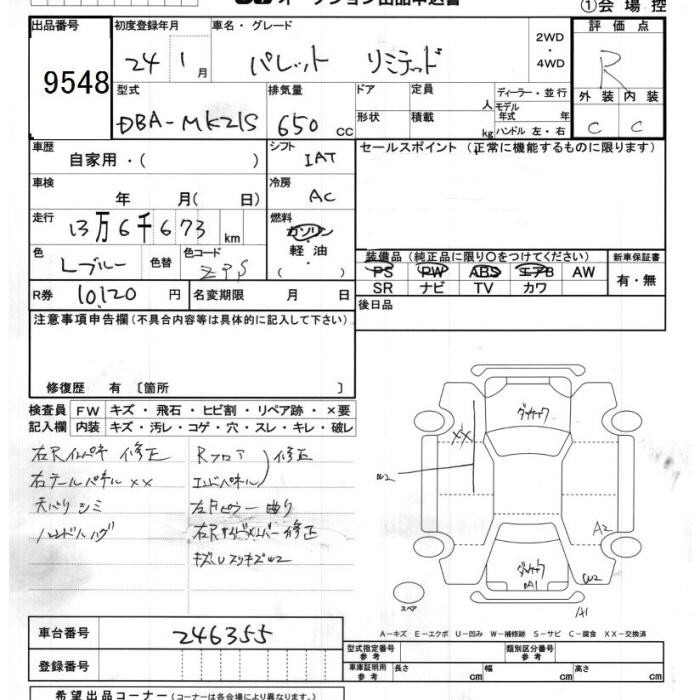 オークション出品申込書
①会場控
出品番号 初度登録年月 車名・グレード 評価点
9548 24 1月 パレット リミテッド 2WD・4WD R
型式 排気量 ドア 定員 人 ディーラー・並行 外装 内装
DBA-MK21S 650 cc 形状 積載 kg モデル年式 年 ハンドル 左・右 C C
車歴 シフト セールスポイント (正常に機能するものに限ります)
自家用・( ) IAT
車検 冷房
年 月( 日) AC
走行 燃料
13万6千673 km ガソリン・軽油・( )
色 色替 色コード 装備品 (純正品に限り○をつけてください) 新車保証書
Lブルー ZPS PS PW ABS エアB AW 有・無
SR ナビ TV カワ
R券 10,120 円 名変期限 月 日 後日品
注意事項申告欄 (不具合内容等は具体的に記入して下さい)
修復歴 有 〔箇所 〕
検査員記入欄 FW キズ・飛石・ヒビ割・リペア跡・×要
内装 キズ・汚レ・コゲ・穴・スレ・キレ・破レ
修正 Rフロア
右テールパネル XX エンドパネル 修正
天バリ シミ 曲り
修正
W2
XX
W2
A2
W2
A1
A1
スペア
A-キズ E-エクボ U-凹み W-補修跡 S-サビ C-腐食 XX-交換済
車台番号 246355 型式指定番号 参考 類別区分番号 参考
登録番号 車庫証明用 参考 長さ cm 幅 cm 高さ cm
希望出品コーナー (コーナーは各会場により異なります)